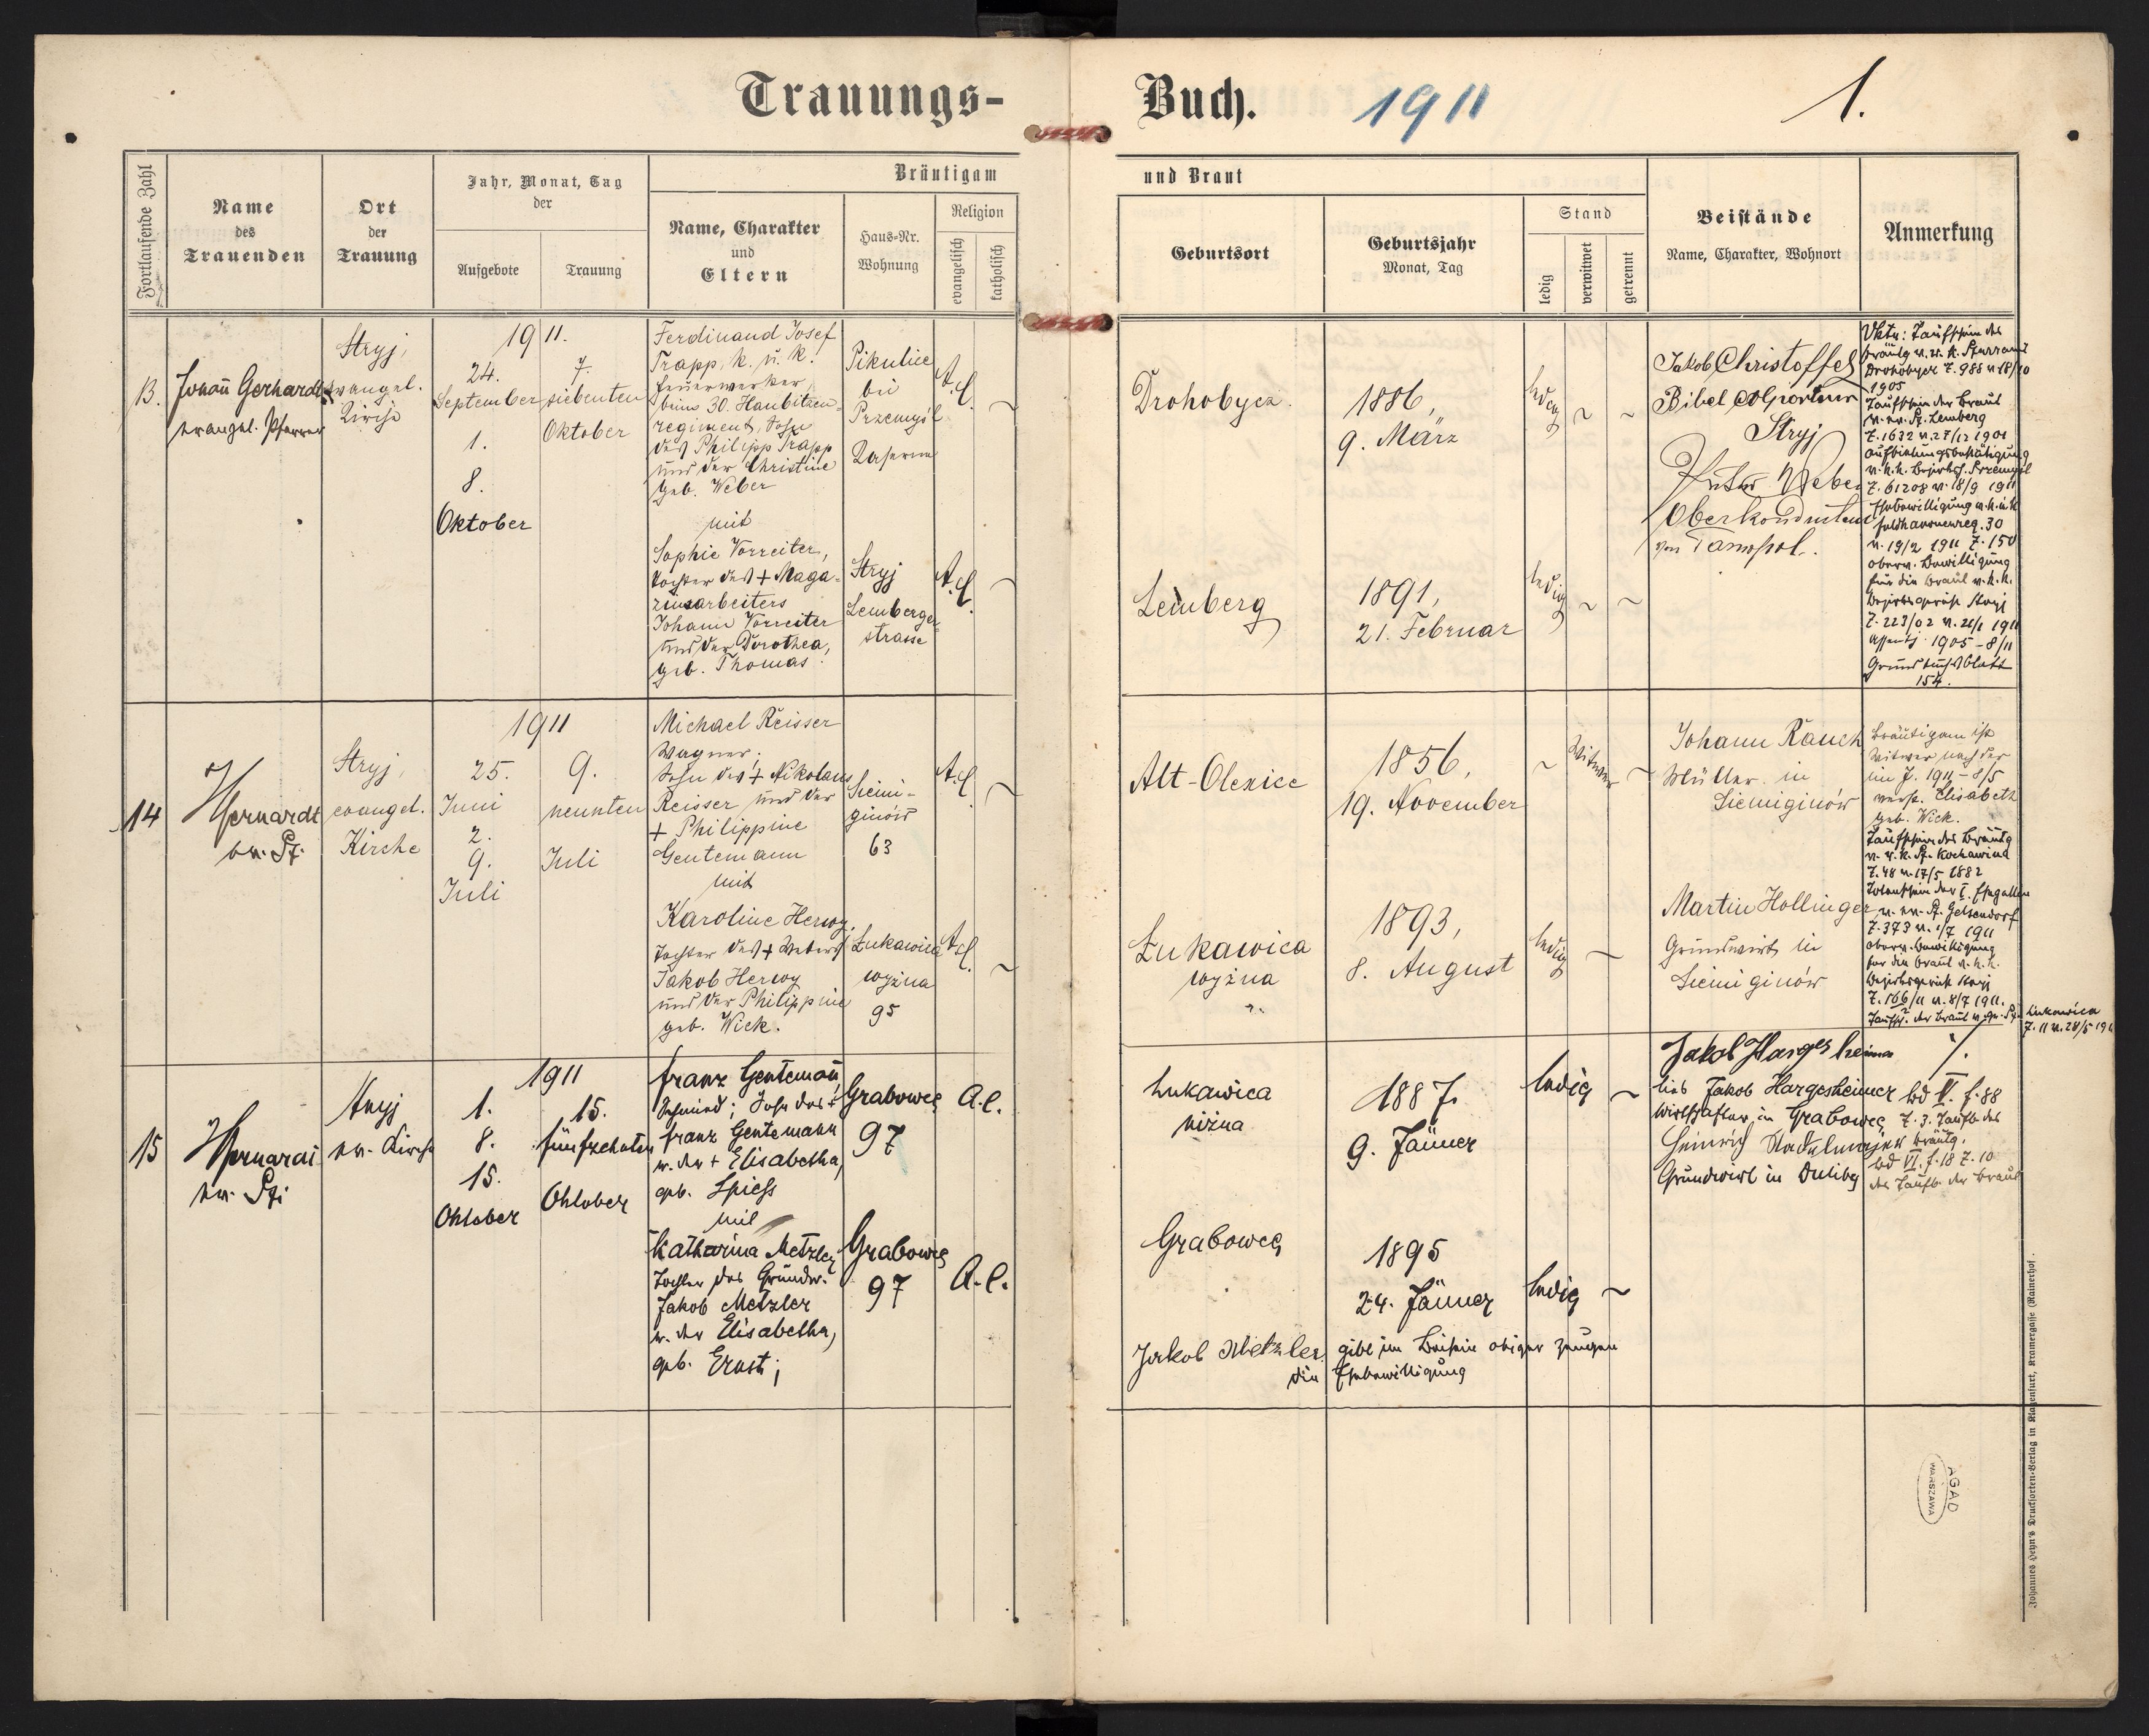 Trauungs-
Buch.
1911
1.
Fortlaufende Zahl
Name
des
Trauenden
Ort
der
Trauung
Jahr, Monat, Tag
der
Aufgebote
Trauung
Bräutigam
und Braut
Name, Charakter
und
Eltern
Haus-Nr.
Wohnung
Religion
evangelisch
katholisch
Geburtsort
Geburtsjahr
Monat, Tag
Stand
ledig
verwitwet
getrennt
Beistände
Name, Charakter, Wohnort
Anmerkung
13.
Johann Gerhardt
evangel. Pfarrer
Stryj,
evangel.
Kirche
1911.
24.
September
1.
8.
Oktober
7.
siebenten
Oktober
Ferdinand Josef
Trapp, k. u. k.
Feuerwerker,
beim 30. Haubitzen-
regiment, Sohn
des Philipp Trapp
und der Christine
geb. Weber
mit
Sophie Vorreiter,
Tochter des + Maga-
zinsarbeiters
Johann Vorreiter
und der Dorothea,
geb. Thomas.
Pikulice
bei
Przemyśl
Kaserne
Stryj
Lemberger-
strasse
A.C.
A.C.
Drohobycz.
Lemberg
1886,
9. März
1891,
21. Februar
ledig
ledig
Jakob Christoffel
Bibelcolporteur
Stryj
Weber
Oberkondukteur
von Tarnopol.
Taufschein des
Bräutg. v. r. k. Pfarramt
Drohobycz Z. 988 v. 18/10
1905
Taufschein der Braut
v. ev. Pf. Lemberg
Z. 1632 v. 27/12 1901
Aufbietungsbestätigung
v. k. k. Bezirksh. Przemyśl
Z. 61208 v. 18/9 1911
Ehebewilligung v. k. u. k.
30
v. 19/2 1911 Z. 150
oberv. Bewilligung
für die Braut v. k. k.
Bezirksgericht Stryj
Z. 223/02 v. 21/1 1911
Assentj. 1905 - 8/11
Grundbuchsblatt
154.
14
evangel.
Stryj,
Kirche
ev. Pf.
1911
25.
Juni
2.
9.
Juli
9.
neunten
Juli
Michael Reisser
Wagner,
Sohn des + Nikolaus
Reisser und der
+ Philippine
Gentemann
mit
Karoline Herwy,
Tochter des + Webers
Jakob Herwy
und der Philippine
geb. Wick.
Sieni-
ginów
63
Łukawica
wyżna
95
A.C.
A.C.
Alt-Olexice
Łukawica
wyżna
1856,
19. November
1893,
8. August
Witwer
ledig
Johann Rauch
Müller in
Siemiginów
Martin Hollinger
Grundwirt in
Siemiginów
Bräutigam ist
Witwer nach der
im J. 1911 - 8/5
verst. Elisabeth
geb. Wick.
Taufschein des Bräutg.
v. r. k. Pf. Kochawina
Z. 48 v. 17/5 1882
Totenschein der I. Ehegattin
v. ev. Pf. Gelsendorf
Z. 373 v. 1/7 1911
oberv. Bewilligung
für die Braut v. k. k.
Bezirksgericht Stryj
Z. 166/11 v. 8/7 1911.
Taufsch. der Braut v. ev. Pf. Lukawica
Z. 11 v. 28/5 191
15
ev. Pf.
Stryj
ev. Kirche
1911
1.
8.
15.
Oktober
15.
fünfzehnten
Oktober
Franz Gentemann,
Schmied; Sohn des +
Franz Gentemann
u. der + Elisabetha,
geb. Spiess
mit
Katharina Metzler,
Tochter des Grundw.
Jakob Metzler
u. der Elisabetha,
geb. Ernst;
Grabowce
97
Grabowce
97
A.C.
A.C.
Lukawica
niżna
Grabowce
1887.
9. Jänner
1895
24. Jänner
ledig
ledig
Jakob Hargesheimer
lies Jakob Hargesheimer
Wirtschafter in Grabowce
Heinrich Stadelmeyer
Grundwirt in Duliby
Bd V. f. 88
Z. 3. Taufb. des
Bräutg.
Bd VI. f. 18 Z. 10
des Taufb. der Braut
Jakob Metzler gibt im Beisein obiger Zeugen
die Ehebewilligung
AGAD
WARSZAWA
Johannes Heyn's Drucksorten-Verlag in Klagenfurt, Kramergasse (Rainerhof).